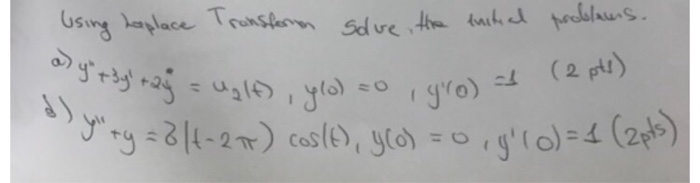 Using Laplace Transform Solve, the initial problems.
a) y'' + 3y' + 2y = u₂(t), y(0) = 0, y'(0) = 1 (2 pts)
b) y'' + y = δ(t-2π) cos(t), y(0) = 0, y'(0) = 1 (2pts)